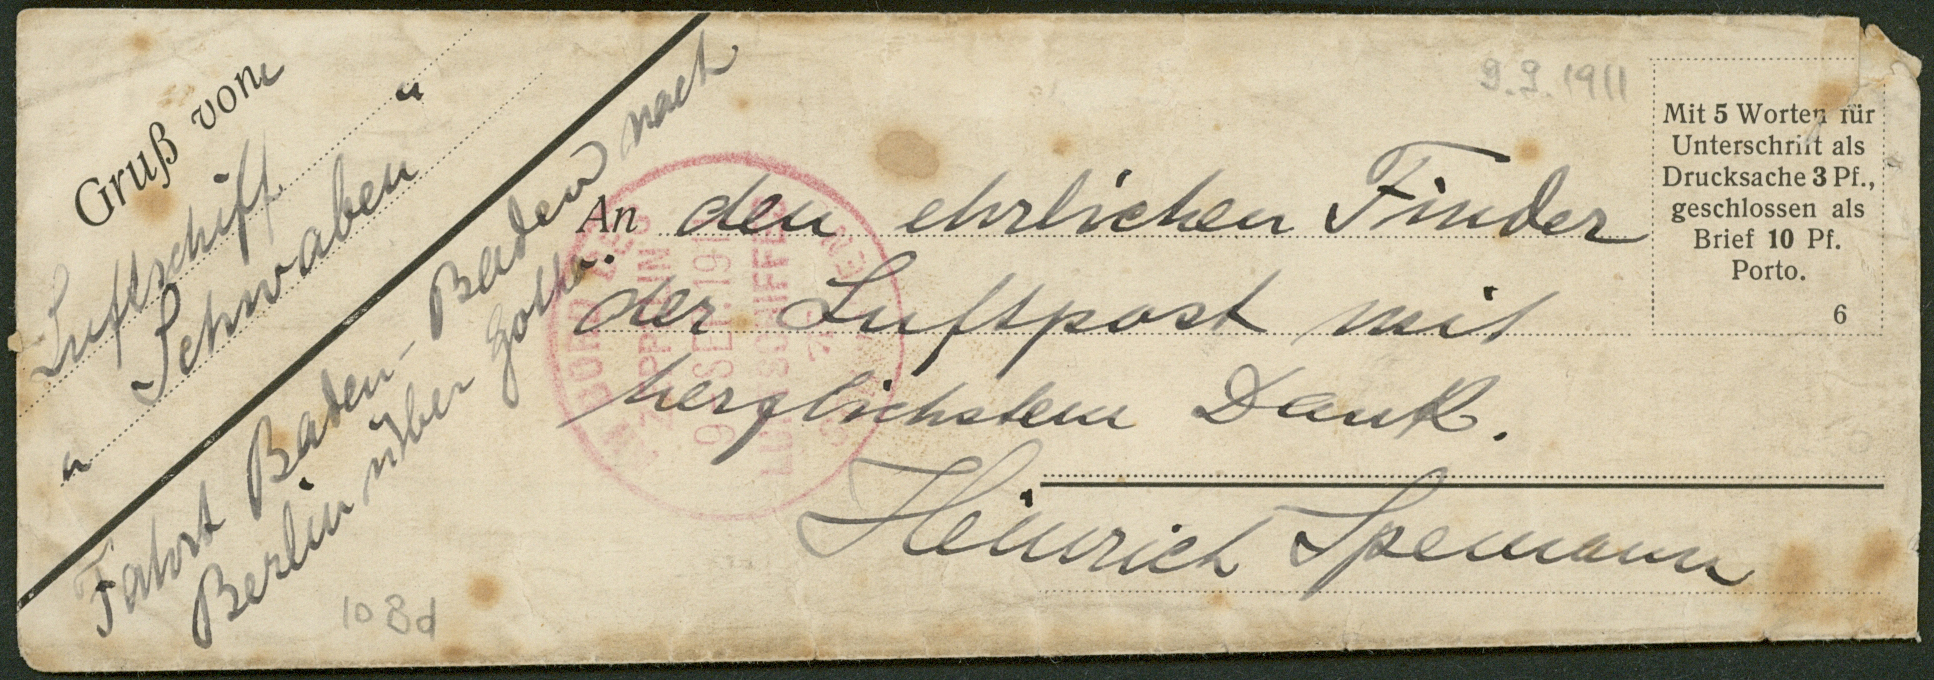 Gruß vom
Luftschiff
„Schwaben“
Fahrt Baden-Baden nach
Berlin über Gotha.
An den ehrlichen Finder
der Luftpost mit
herzlichstem Dank.
Heinrich Spemann
9.9.1911
Mit 5 Worten für
Unterschrift als
Drucksache 3 Pf.,
geschlossen als
Brief 10 Pf.
Porto.
6
AN BORD DES
ZEPPELIN
9. SEP. 1911
LUFTSCHIFFES